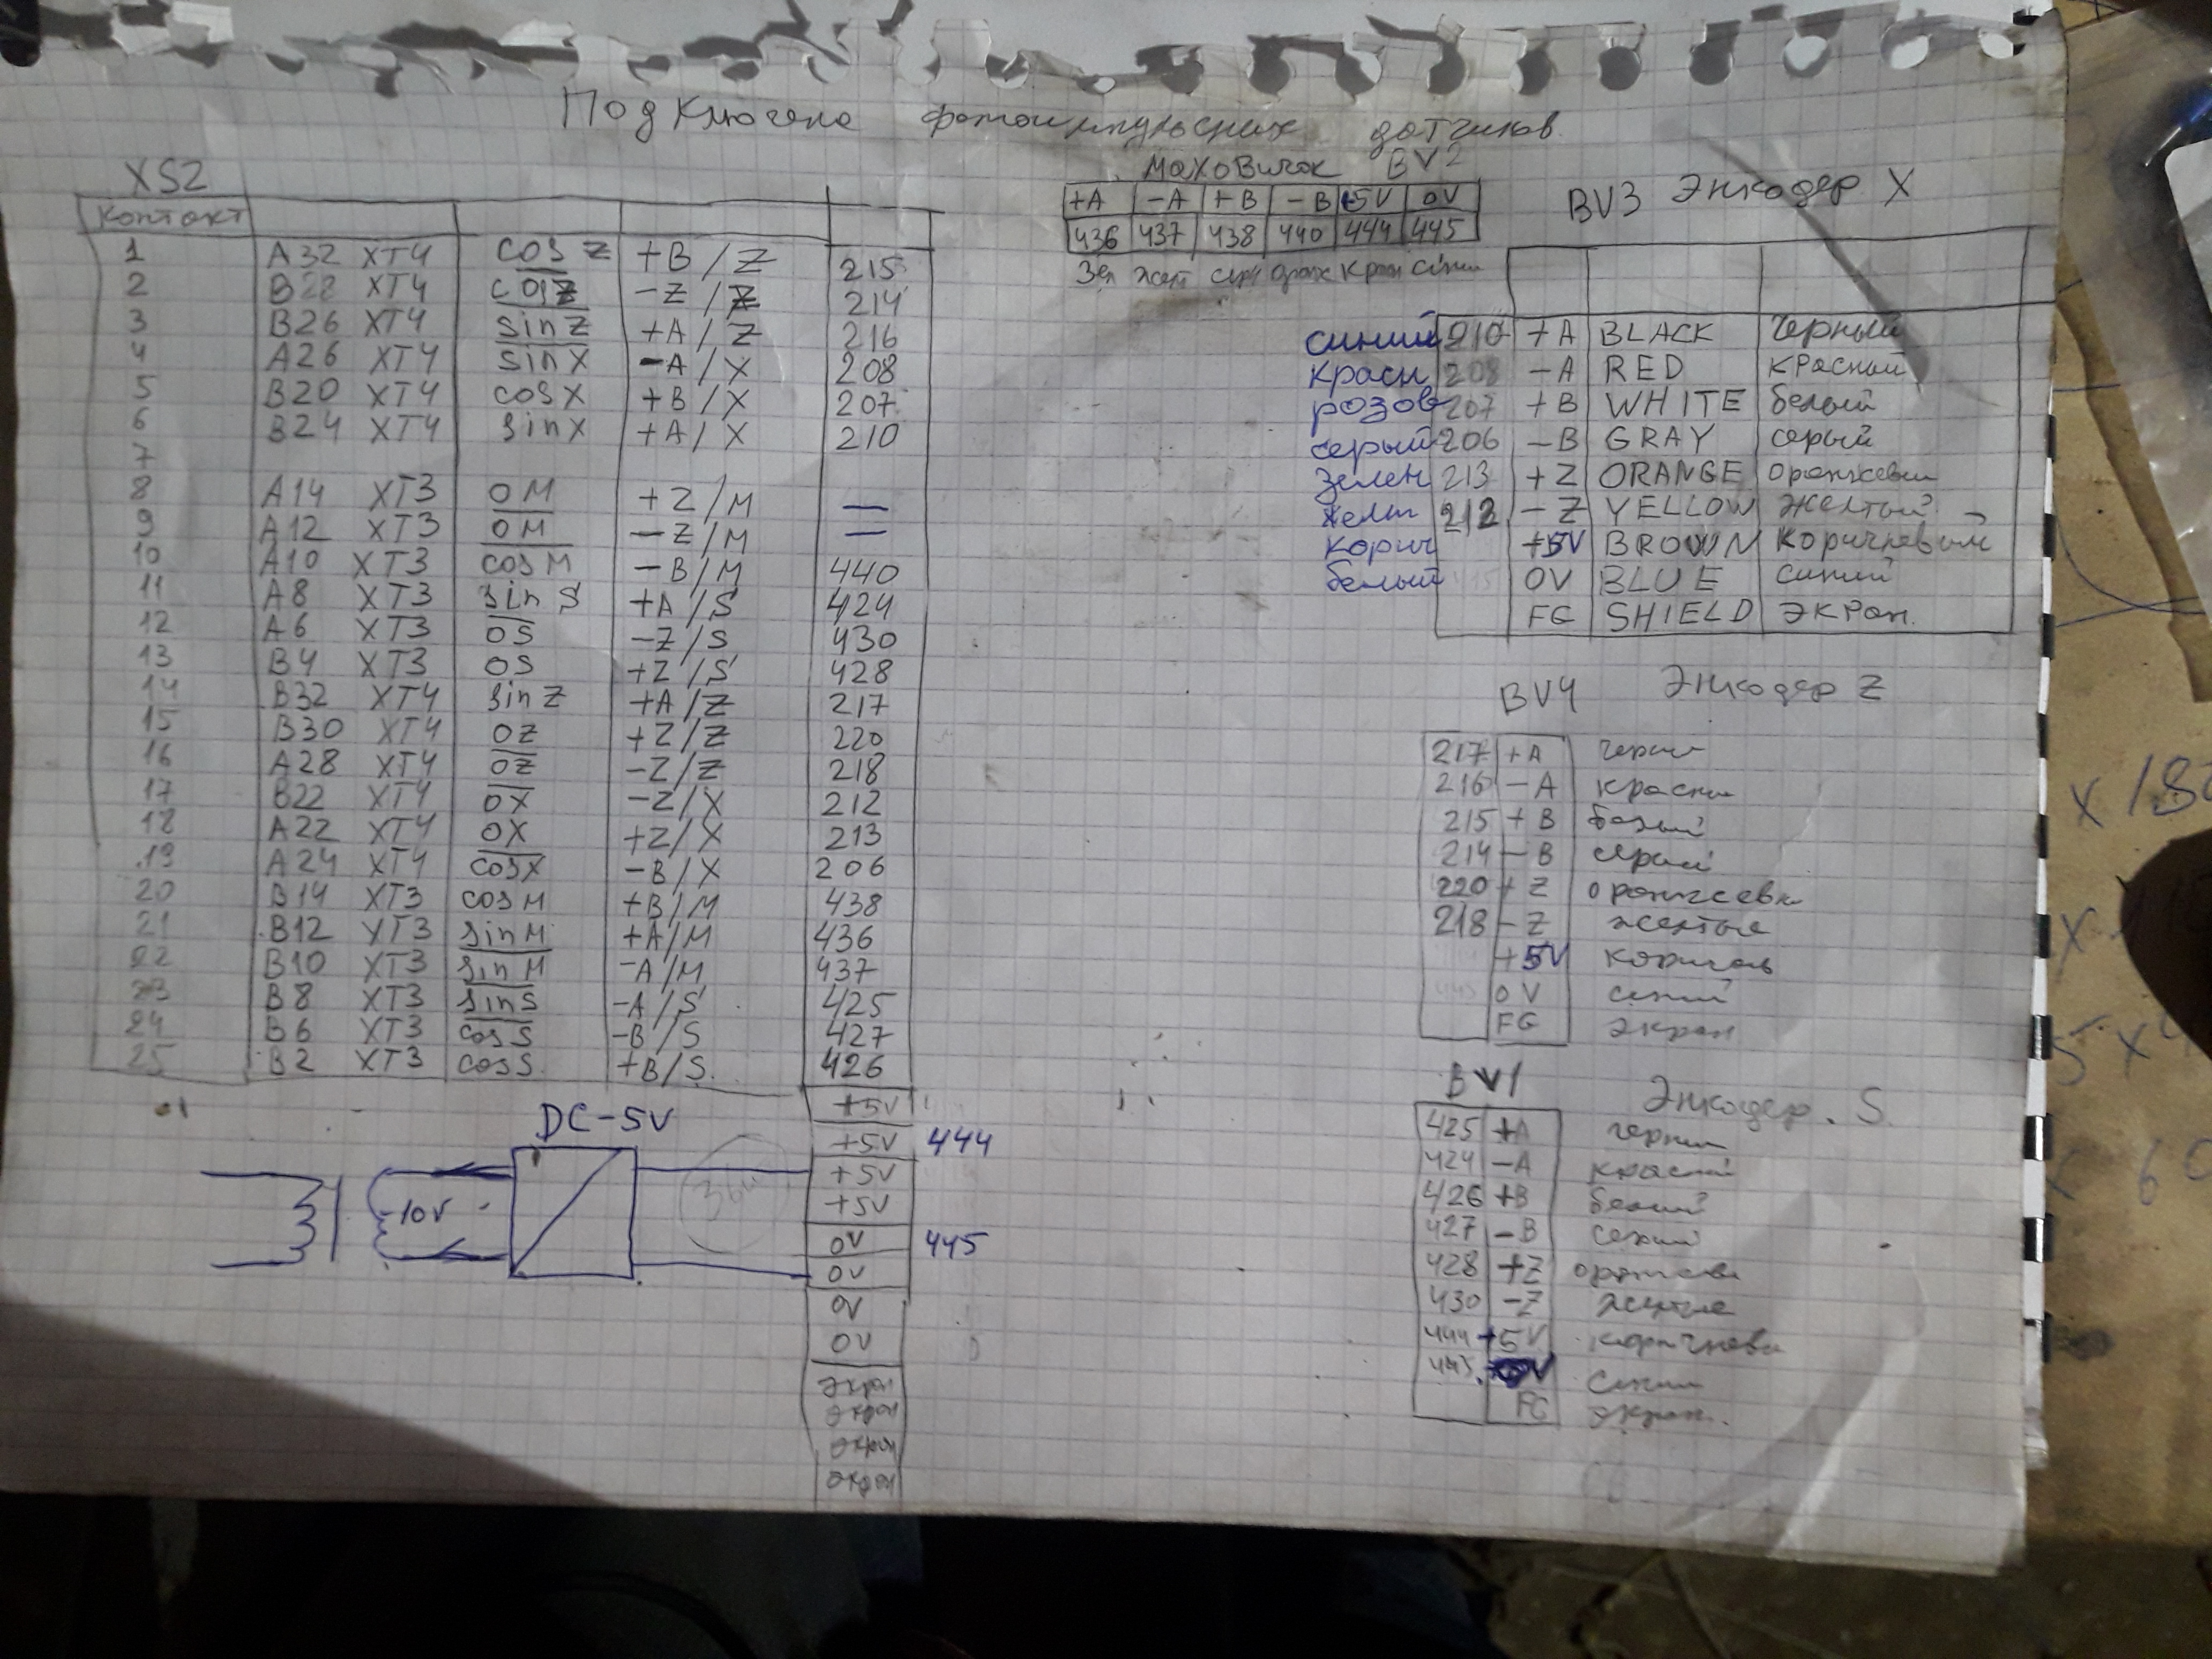 Подключение фотоимпульсных датчиков
XS2
контакт
1 A32 XT4 cos Z +B/Z 215
2 B28 XT4 cosZ -Z/Z 214
3 B26 XT4 sinZ +A/Z 216
4 A26 XT4 sinX -A/X 208
5 B20 XT4 cosX +B/X 207
6 B24 XT4 sinX +A/X 210
7
8 A14 XT3 OM +Z/M —
9 A12 XT3 OM -Z/M —
10 A10 XT3 cosM -B/M 440
11 A8 XT3 sin S +A/S 424
12 A6 XT3 OS -Z/S 430
13 B4 XT3 OS +Z/S 428
14 B32 XT4 sin Z +A/Z 217
15 B30 XT4 OZ +Z/Z 220
16 A28 XT4 OZ -Z/Z 218
17 B22 XT4 OX -Z/X 212
18 A22 XT4 OX +Z/X 213
19 A24 XT4 cosX -B/X 206
20 B14 XT3 cosM +B/M 438
21 B12 XT3 sinM +A/M 436
22 B10 XT3 sinM -A/M 437
23 B8 XT3 sinS -A/S 425
24 B6 XT3 cosS -B/S 427
25 B2 XT3 cosS +B/S. 426
+5V
+5V 444
+5V
+5V
0V 445
0V
0V
0V
экран
экран
экран
экран
DC-5V
~10V
маховичок BV2
+A -A +B -B +5V 0V
436 437 438 440 444 445
Зел желт серы оранж Красн синий
BV3 Энкодер X
синий 210 +A BLACK черный
красн 208 -A RED красный
розов 207 +B WHITE белый
серый 206 -B GRAY серый
зелен 213 +Z ORANGE оранжевый
желт 212 -Z YELLOW желтый
корич +5V BROWN коричневый
белый 0V BLUE синий
FG SHIELD экран.
BV4 Энкодер Z
217 +A черный
216 -A красный
215 +B белый
214 -B серый
220 +Z оранжевы
218 -Z желтые
+5V коричнев
445 0V синий
FG экран
BV1 Энкодер. S
425 +A черный
424 -A красный
426 +B белый
427 -B серый
428 +Z оранжевы
430 -Z желтые
444 +5V коричневы
445 0V синий
FG экран.
x 180
x
5 x 4
x 60